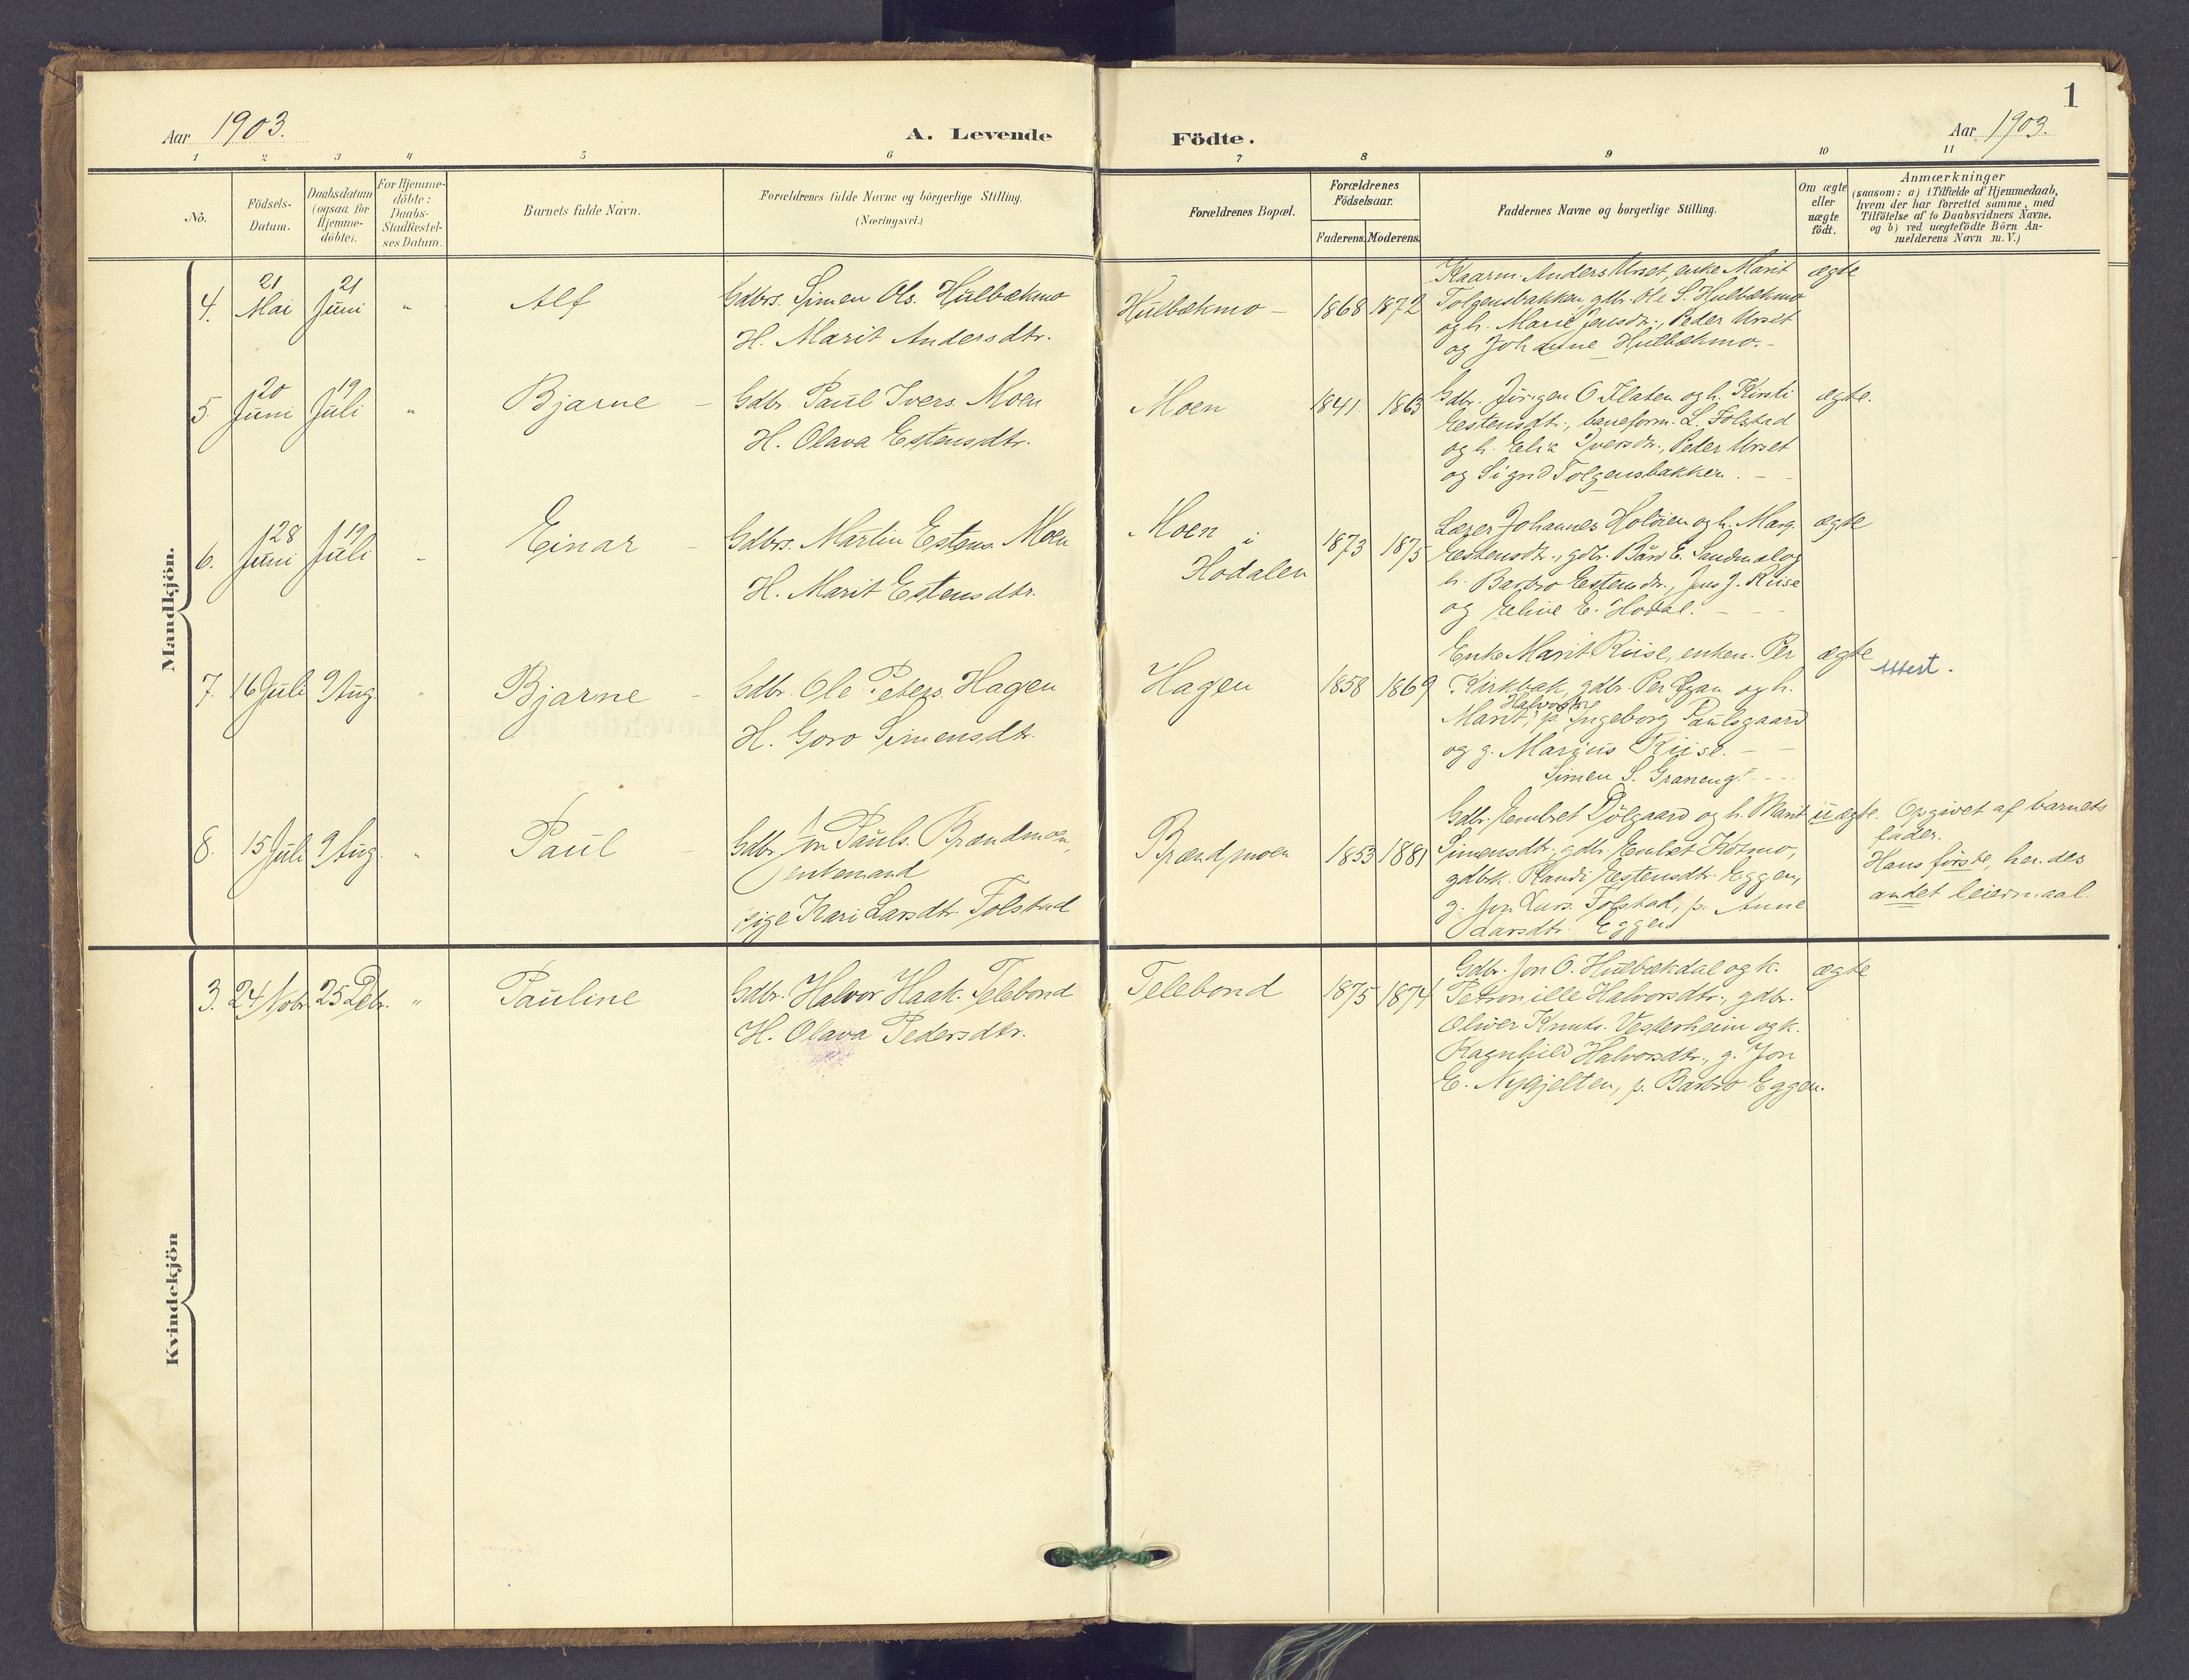 1
Aar 1903.
A. Levende
Födte.
Aar 1903.
1 2 3 4 5 6 7 8 9 10 11
No.
Födsels-
Datum.
Daabsdatum
(ogsaa for
Hjemme-
döbte).
For Hjemme-
döbte:
Daabs-
Stadfæstel-
ses Datum.
Barnets fulde Navn.
Forældrenes fulde Navne og borgerlige Stilling.
(Næringsvei.)
Forældrenes Bopæl.
Forældrenes
Födselsaar.
Faderens. Moderens.
Faddernes Navne og borgerlige Stilling.
Om ægte
eller
uægte
födt.
Anmærkninger
(saasom: a) i Tilfælde af Hjemmedaab,
hvem der har forrettet samme, med
Tilföielse af to Daabsvidners Navne.
og b) ved uægtefödte Börn An-
melderens Navn m. V.)
Mandkjön.
4.
21
Mai
21
Juni
"
Alf
Gdbrs. Simen Ols. Hulbækmo
H. Marit Andersdtr.
Hulbækmo -
1868 1872
Kaarm. Anders Urset, enke Marit
Tolgensbakken, gdbr. Ole S. Hulbækmo
og h. Marie Jensdtr., Peder Urset
og Johanne Hulbækmo. -
ægte
5.
20
Juni
19
Juli
"
Bjarne -
Gdbr. Paul Ivers. Moen
H. Olava Estensdtr.
Moen
1841 1863
Gdbr. Jörgen O. Flaten og h. Kirsti
Estensdtr., baneform. L. Folstad
og h. Elia Iversdtr., Peder Urset
og Sigrid Tolgensbakken. -
ægte.
6.
28
Juni
19
Juli
"
Einar -
Gdbrs. Martin Estens. Moen
H. Marit Estensdtr.
Moen i
Hodalen
1873 1875
Lærer Johannes Holöien og h. Marg.
Estensdtr., gdbr. Bård E. Sandmæl og
h. Barbro Estensdtr., Jens J. Riise
og Eline E. Hodal. -
ægte
7. 16 Juli 9 Aug. "
Bjarne -
Gdbr. Ole Peters. Hagen
H. Goro Simensdtr.
Hagen
1858 1869
Enke Marit Riise, enkem. Per
Kirkbak, gdbr. Per Lgan og h.
Halvorsdtr
Marit, p. Ingeborg Paulsgaard
og g. Marius Riise. -
Simen S. Graneng. -
ægte
Attest.
8. 15 Juli 9 Aug. "
Paul -
Gdbr. Jon Pauls. Brændmoen,
enkemand
pige Kari Larsdtr. Folstad
Brændmoen
1853 1881
Gdbr. Embret Dölgaard og h. Marit
Simensdtr., gdbr. Embret Kotmo,
gdbrk. Randi Estensdtr. Eggen,
g. Jon Lars. Folstad, p. Anne
Larsdtr. Eggen
uægte.
Opgivet af barnets
fader.
Hans förste, hendes
andet leiermaal.
Kvindekjön
3. 24 Novbr. 25 Debr. "
Pauline
Gdbr. Halvor Haak. Telebond
H. Olava Pedersdtr.
Telebond
1875 1874
Gdbr. Jon O. Hulbækdal og k.
Petronille Halvorsdtr., gdbr.
Oliver Knuts. Vesterheim og k.
Ragnhild Halvorsdtr., g. Jon
E. Nygjelten, p. Barbro Eggen.
ægte